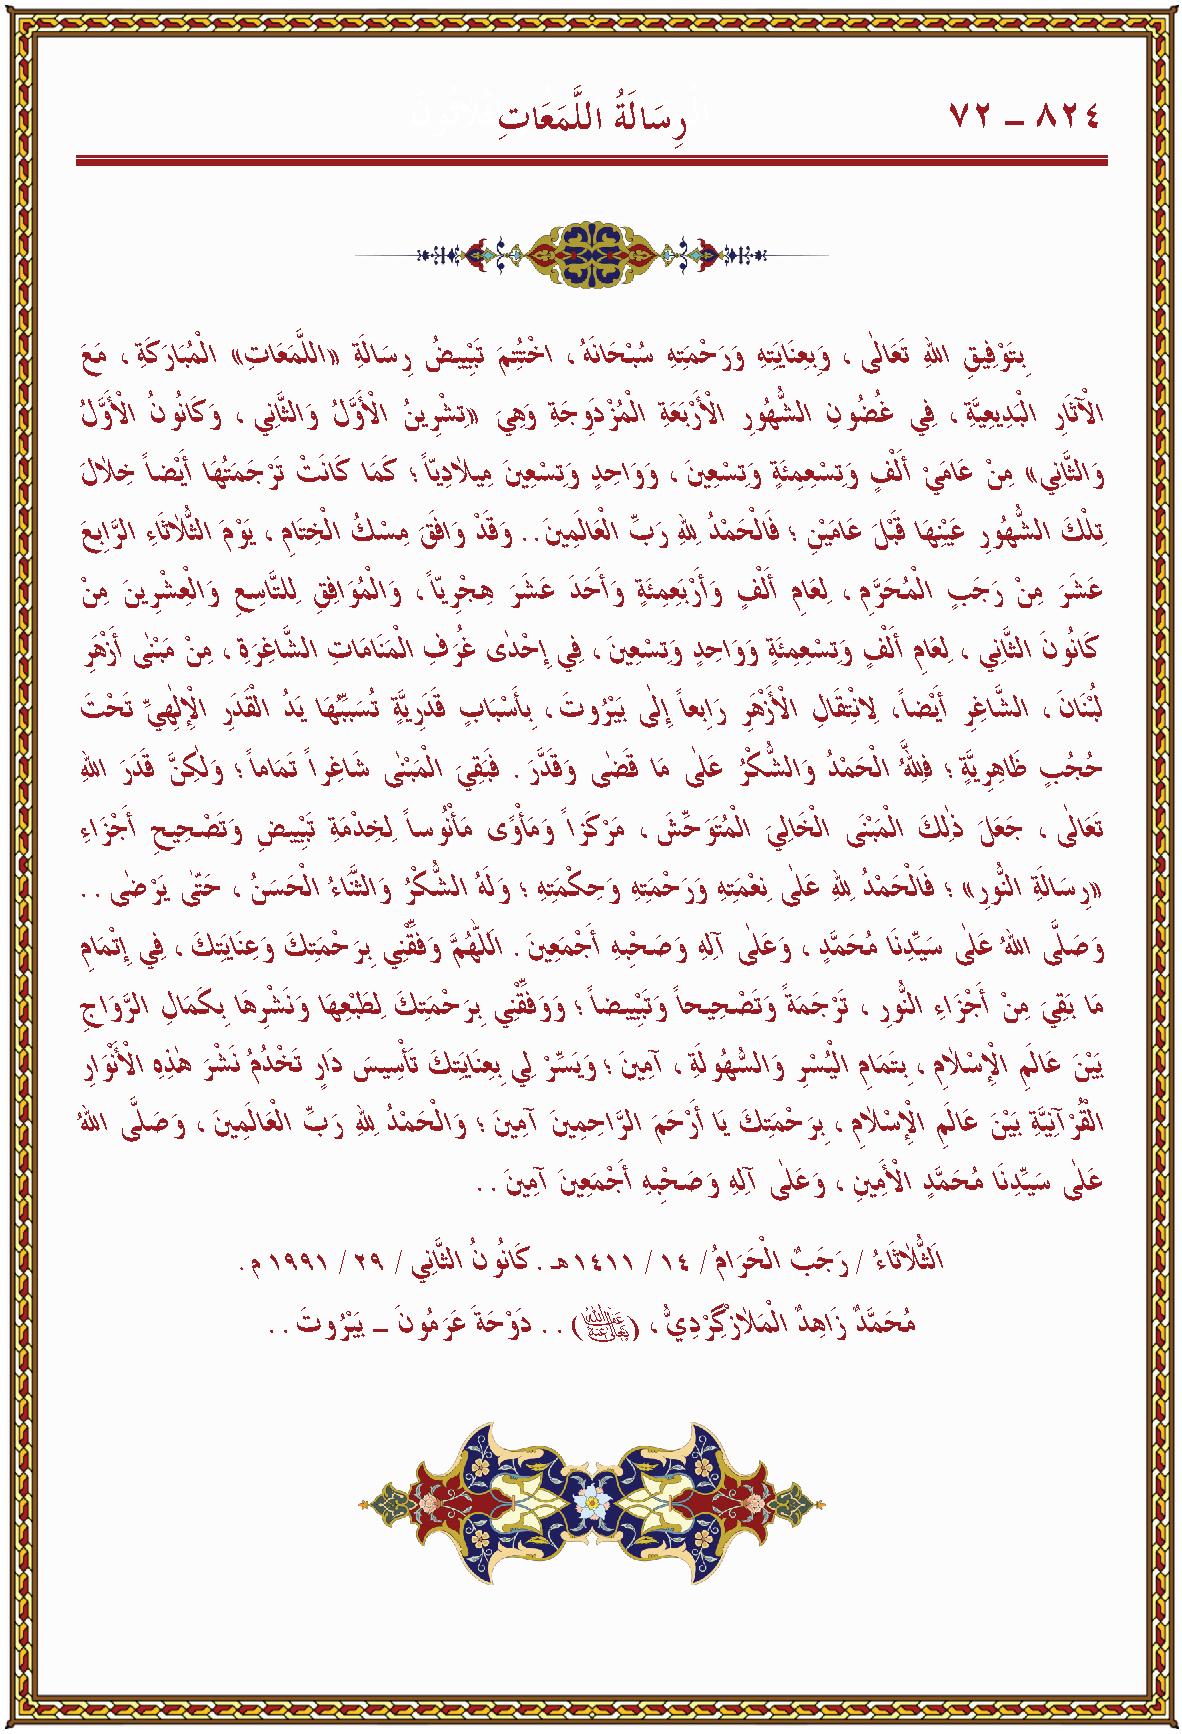 ٨٢٤ – ٧٢
رِسَالَةُ اللَّمَعَاتِ
بِتَوْفِيقِ اللهِ تَعَالٰى ، وَبِعِنَايَتِهِ وَرَحْمَتِهِ سُبْحَانَهُ ، اخْتُتِمَ تَبْيِيضُ رِسَالَةِ «اللَّمَعَاتِ» الْمُبَارَكَةِ ، مَعَ
الْآثَارِ الْبَدِيعِيَّةِ ، فِي غُضُونِ الشُّهُورِ الْأَرْبَعَةِ الْمُزْدَوِجَةِ وَهِيَ «تِشْرِينُ الْأَوَّلُ وَالثَّانِي ، وَكَانُونُ الْأَوَّلُ
وَالثَّانِي» مِنْ عَامَيْ أَلْفٍ وَتِسْعِمِئَةٍ وَتِسْعِينَ ، وَوَاحِدٍ وَتِسْعِينَ مِيلَادِيّاً ؛ كَمَا كَانَتْ تَرْجَمَتُهَا أَيْضاً خِلَالَ
تِلْكَ الشُّهُورِ عَيْنِهَا قَبْلَ عَامَيْنِ ؛ فَالْحَمْدُ لِلهِ رَبِّ الْعَالَمِينَ . . وَقَدْ وَافَقَ مِسْكُ الْخِتَامِ ، يَوْمَ الثُّلَاثَاءِ الرَّابِعَ
عَشَرَ مِنْ رَجَبٍ الْمُحَرَّمِ ، لِعَامِ أَلْفٍ وَأَرْبَعِمِئَةٍ وَأَحَدَ عَشَرَ هِجْرِيّاً ، الْمُوَافِقِ لِلتَّاسِعِ وَالْعِشْرِينَ مِنْ
كَانُونَ الثَّانِي ، لِعَامِ أَلْفٍ وَتِسْعِمِئَةٍ وَوَاحِدٍ وَتِسْعِينَ ، فِي إِحْدٰى غُرَفِ الْمَنَامَاتِ الشَّاغِرَةِ ، مِنْ مَبْنٰى أَزْهَرِ
لُبْنَانَ ، الشَّاغِرِ أَيْضاً، لِانْتِقَالِ الْأَزْهَرِ رَابِعاً إِلٰى بَيْرُوتَ ، بِأَسْبَابٍ قَدَرِيَّةٍ تُسَبِّبُهَا يَدُ الْقَدَرِ الْإِلٰهِيِّ تَحْتَ
حُجُبٍ ظَاهِرِيَّةٍ ؛ فَلِلّٰهِ الْحَمْدُ وَالشُّكْرُ عَلٰى مَا قَضٰى وَقَدَّرَ . فَبَقِيَ الْمَبْنٰى شَاغِراً تَمَاماً ؛ وَلٰكِنَّ قَدَرَ اللهِ
تَعَالٰى ، جَعَلَ ذٰلِكَ الْمَبْنَى الْخَالِيَ الْمُتَوَحِّشَ ، مَرْكَزاً وَمَأْوًى مَأْنُوساً لِخِدْمَةِ تَبْيِيضِ وَتَصْحِيحِ أَجْزَاءِ
«رِسَالَةِ النُّورِ» ؛ فَالْحَمْدُ لِلهِ عَلٰى نِعْمَتِهِ وَرَحْمَتِهِ وَحِكْمَتِهِ ؛ وَلَهُ الشُّكْرُ وَالثَّنَاءُ الْحَسَنُ ، حَتّٰى يَرْضٰى . .
وَصَلَّى اللهُ عَلٰى سَيِّدِنَا مُحَمَّدٍ ، وَعَلٰى آلِهِ وَصَحْبِهِ أَجْمَعِينَ . اَللّٰهُمَّ وَفِّقْنِي بِرَحْمَتِكَ وَعِنَايَتِكَ ، فِي إِتْمَامِ
مَا بَقِيَ مِنْ أَجْزَاءِ النُّورِ ، تَرْجَمَةً وَتَصْحِيحاً وَتَبْيِيضاً ؛ وَوَفِّقْنِي بِرَحْمَتِكَ لِطَبْعِهَا وَنَشْرِهَا بِكَمَالِ الرَّوَاجِ
بَيْنَ عَالَمِ الْإِسْلَامِ ، بِتَمَامِ الْيُسْرِ وَالسُّهُولَةِ ، آمِينَ ؛ وَيَسِّرْ لِي بِعِنَايَتِكَ تَأْسِيسَ دَارٍ تَخْدُمُ نَشْرَ هٰذِهِ الْأَنْوَارِ
الْقُرْآنِيَّةِ بَيْنَ عَالَمِ الْإِسْلَامِ ، بِرَحْمَتِكَ يَا أَرْحَمَ الرَّاحِمِينَ آمِينَ ؛ وَالْحَمْدُ لِلهِ رَبِّ الْعَالَمِينَ ، وَصَلَّى اللهُ
عَلٰى سَيِّدِنَا مُحَمَّدٍ الْأَمِينِ ، وَعَلٰى آلِهِ وَصَحْبِهِ أَجْمَعِينَ آمِينَ . .
اَلثُّلَاثَاءُ / رَجَبٌ الْحَرَامُ / ١٤ / ١٤١١هـ . كَانُونُ الثَّانِي / ٢٩ / ١٩٩١ م .
مُحَمَّدٌ زَاهِدٌ الْمَلَازْگِرْدِيُّ ، ( ) . . دَوْحَةَ عَرَمُونَ – بَيْرُوتَ . .